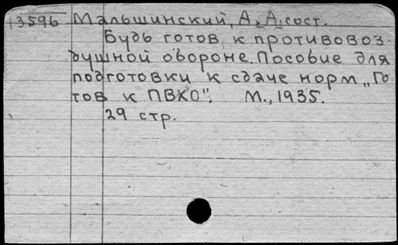 13596 Мальшинский, А. А., сост.
Будь готов к противовоз
душной обороне. Пособие для
подготовки к сдаче норм „Го
тов к ПВХО". М., 1935.
29 стр.